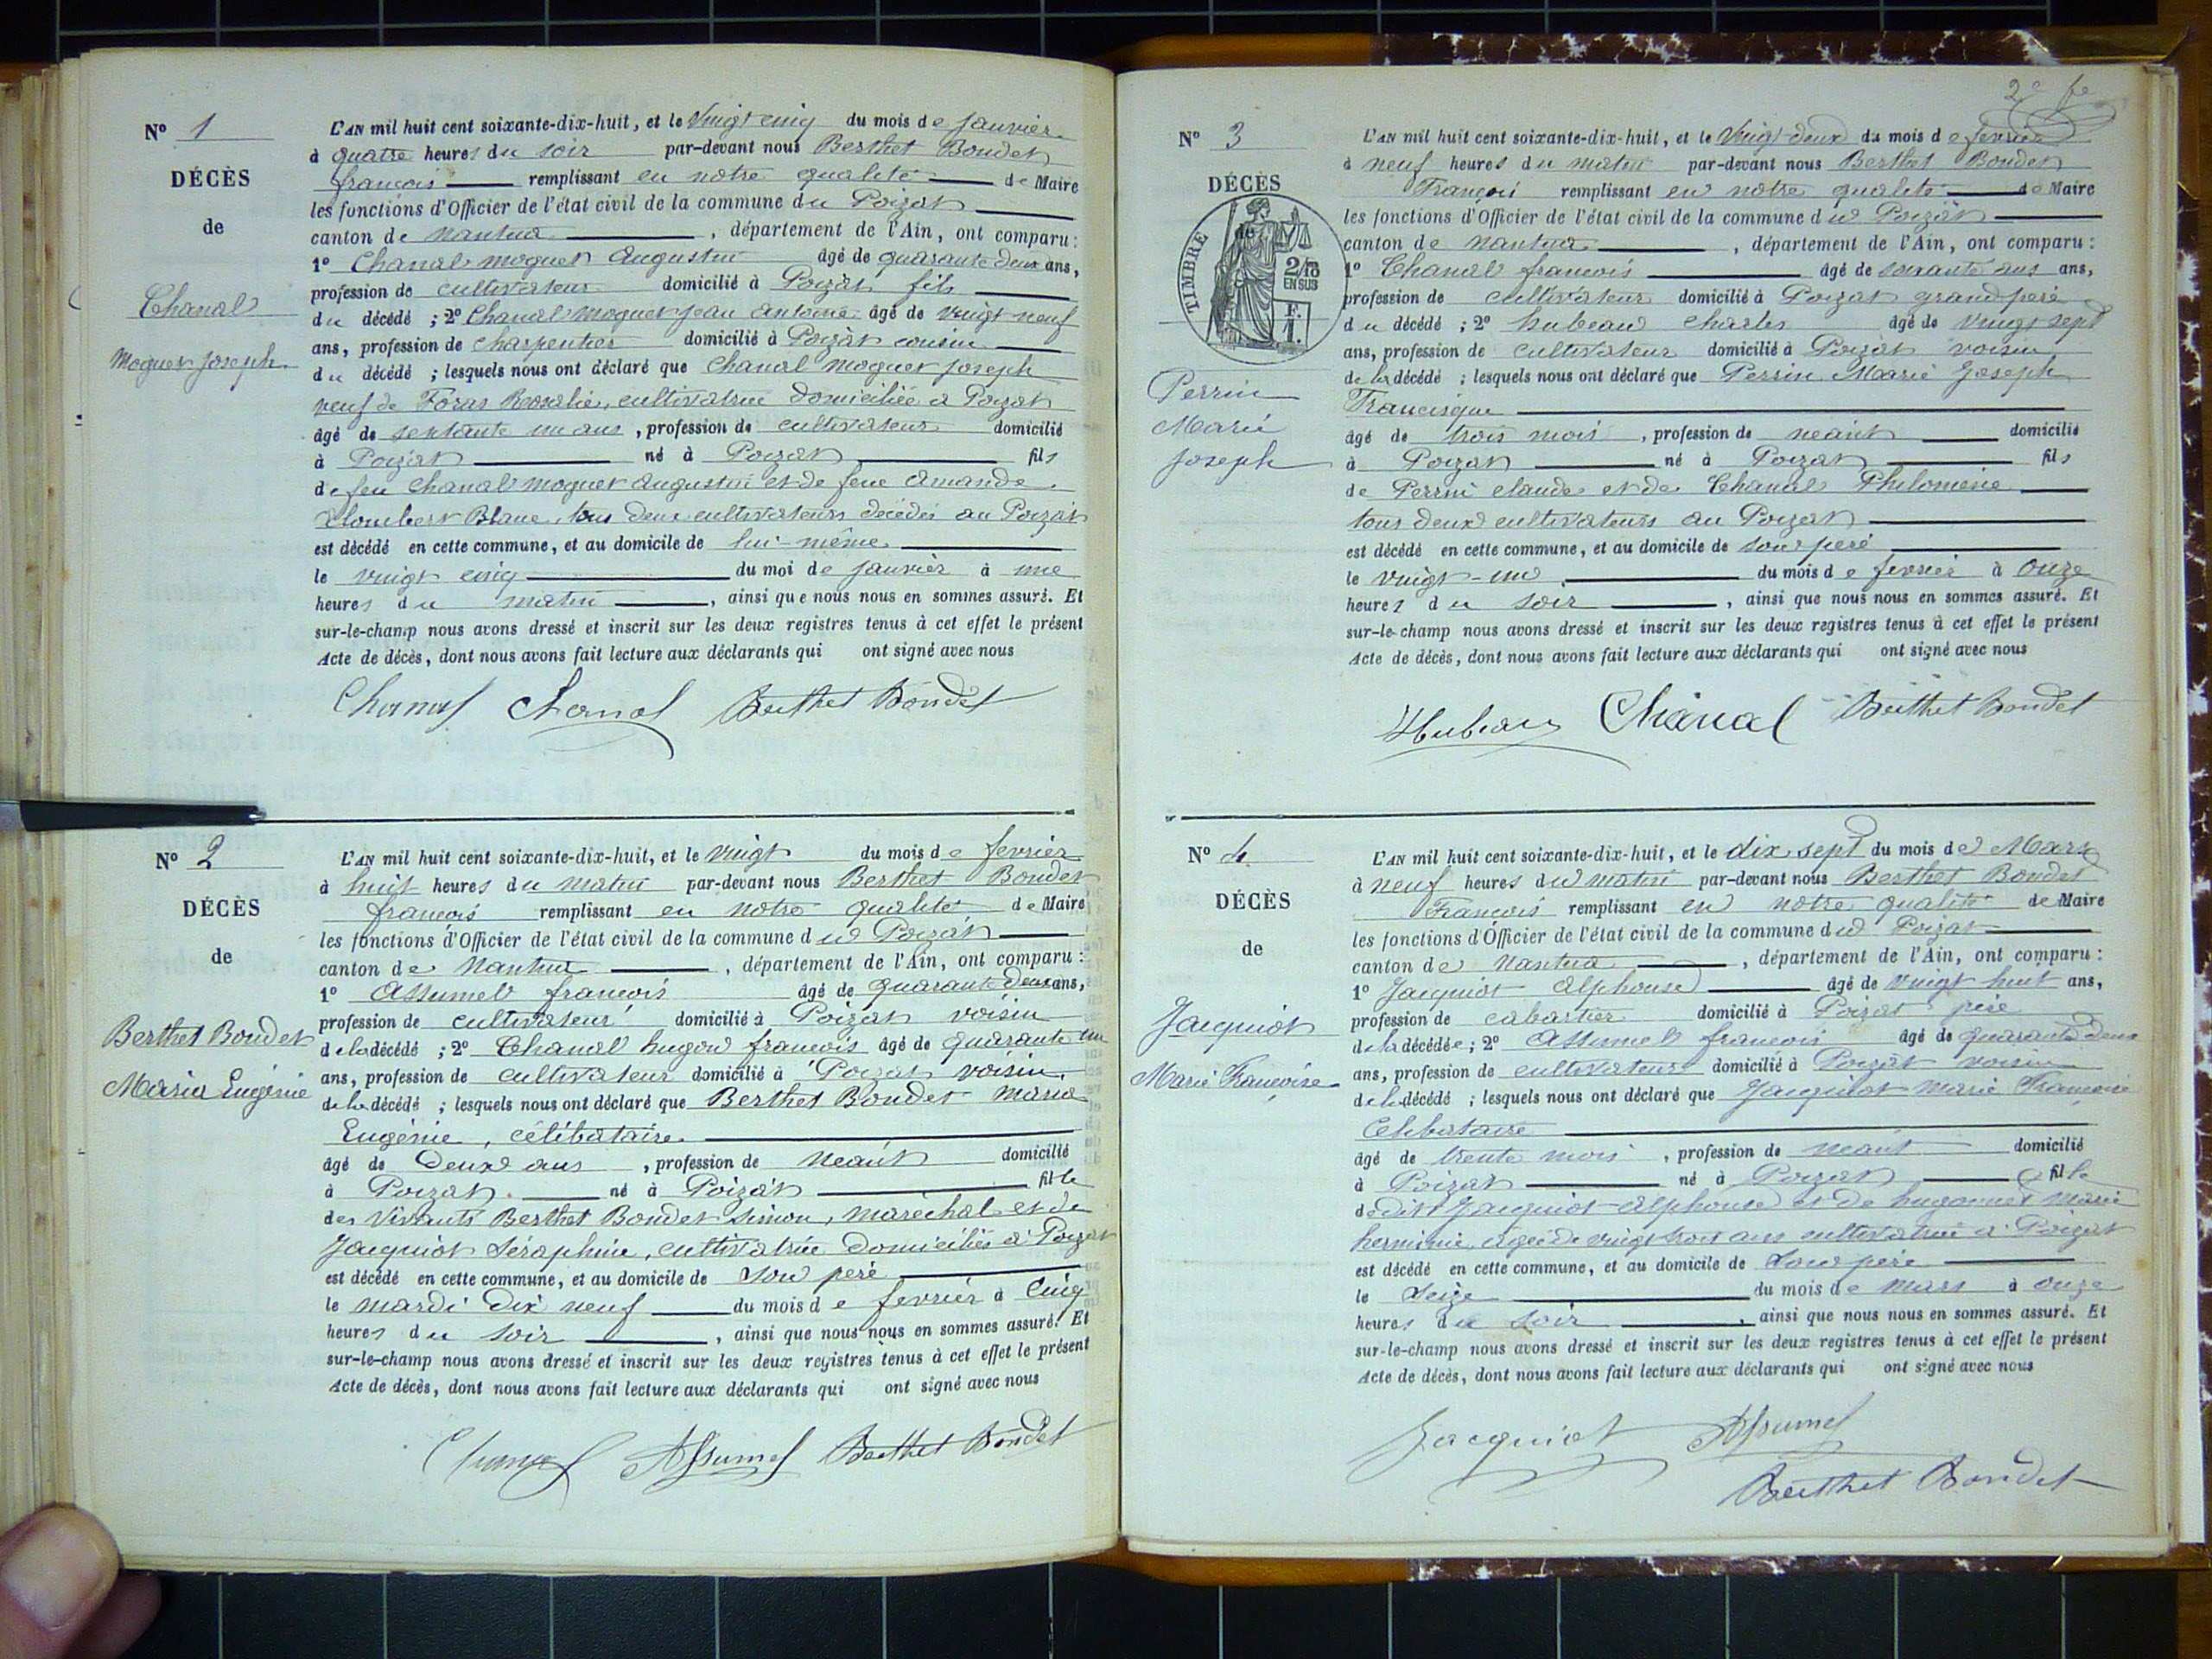 N° 1
DÉCÈS
de
Chanal
Moguet Joseph
L'AN mil huit cent soixante-dix-huit, et le Vingt cinq du mois de Janvier
à quatre heures du soir par-devant nous Berthet Bondet
françois remplissant en notre qualité de Maire
les fonctions d'Officier de l'état civil de la commune du Poizat
canton de Nantua, département de l'Ain, ont comparu :
1° Chanal moguet Augustin âgé de quarante deux ans,
profession de cultivateur domicilié à Poizat fils
du décédé ; 2° Chanal Moguet Jean Antoine âgé de vingt neuf
ans, profession de charpentier domicilié à Poizat cousin
du décédé ; lesquels nous ont déclaré que Chanal Moguet Joseph
veuf de Foras Rosalie, cultivatrice domiciliée à Poizat
âgé de septante un ans, profession de cultivateur domicilié
à Poizat né à Poizat fils
de feu Chanal moguet Augustin et de feue Amande
Blanc, tous deux cultivateurs décédés au Poizat
est décédé en cette commune, et au domicile de lui-même
le vingt cinq du moi de Janvier à une
heures du matin, ainsi que nous nous en sommes assuré. Et
sur-le-champ nous avons dressé et inscrit sur les deux registres tenus à cet effet le présent
Acte de décès, dont nous avons fait lecture aux déclarants qui ont signé avec nous
Chanal Chanal Berthet Bondet
N° 2
DÉCÈS
de
Berthet Bondet
Maria Eugénie
L'AN mil huit cent soixante-dix-huit, et le vingt du mois de fevrier
à huit heures du matin par-devant nous Berthet Bondet
françois remplissant en notre qualité de Maire
les fonctions d'Officier de l'état civil de la commune du Poizat
canton de Nantua, département de l'Ain, ont comparu :
1° Assumel françois âgé de quarante deux ans,
profession de cultivateur domicilié à Poizat voisin
de la décédé ; 2° Chanal hugon françois âgé de quarante un
ans, profession de cultivateur domicilié à Poizat voisin
de la décédé ; lesquels nous ont déclaré que Berthet Bondet Maria
Eugénie, célibataire
âgé de Deux ans, profession de néant domicilié
à Poizat né à Poizat fille
des vivants Berthet Bondet Simon, maréchal et de
Jacquiot Séraphine, cultivatrice domiciliés à Poizat
est décédé en cette commune, et au domicile de son père
le mardi dix neuf du mois de fevrier à cinq
heures du soir, ainsi que nous nous en sommes assuré. Et
sur-le-champ nous avons dressé et inscrit sur les deux registres tenus à cet effet le présent
Acte de décès, dont nous avons fait lecture aux déclarants qui ont signé avec nous
Assumel Berthet Bondet
2e fe
N° 3
DÉCÈS
de
TIMBRE
2/10
EN SUS
F.
1.
Perrin
Marie
Joseph
L'AN mil huit cent soixante-dix-huit, et le Vingt deux du mois de fevrier
à neuf heures du matin par-devant nous Berthet Bondet
François remplissant en notre qualité de Maire
les fonctions d'Officier de l'état civil de la commune du Poizat
canton de Nantua, département de l'Ain, ont comparu :
1° Chanal françois âgé de soixante ans ans,
profession de cultivateur domicilié à Poizat grand père
du décédé ; 2° hubeaud Charles âgé de vingt sept
ans, profession de cultivateur domicilié à Poizat voisin
de la décédé ; lesquels nous ont déclaré que Perrin Marie Joseph
Francisque
âgé de trois mois, profession de néant domicilié
à Poizat né à Poizat fils
de Perrin claude et de Chanal Philomène
tous deux cultivateurs au Poizat
est décédé en cette commune, et au domicile de son père
le vingt-un du mois de fevrier à Onze
heures du soir, ainsi que nous nous en sommes assuré. Et
sur-le-champ nous avons dressé et inscrit sur les deux registres tenus à cet effet le présent
Acte de décès, dont nous avons fait lecture aux déclarants qui ont signé avec nous
Chanal Berthet Bondet
N° 4
DÉCÈS
de
Jacquiot
Marie Françoise
L'AN mil huit cent soixante-dix-huit, et le dix sept du mois de Mars
à neuf heures du matin par-devant nous Berthet Bondet
François remplissant en notre qualité de Maire
les fonctions d'Officier de l'état civil de la commune du Poizat
canton de Nantua, département de l'Ain, ont comparu :
1° Jacquiot Alphonse âgé de vingt huit ans,
profession de cabartier domicilié à Poizat père
de la décédée ; 2° Assumel françois âgé de quarante deux
ans, profession de cultivateur domicilié à Poizat voisin
de la décédé ; lesquels nous ont déclaré que Jacquiot Marie Françoise
Celibataire
âgé de trente mois, profession de néant domicilié
à Poizat né à Poizat fille
de dit Jacquiot Alphonse et de hugonnet Marie
herminie, agée de vingt trois ans cultivatrice à Poizat
est décédé en cette commune, et au domicile de son père
le Seize du mois de Mars à onze
heures du soir, ainsi que nous nous en sommes assuré. Et
sur-le-champ nous avons dressé et inscrit sur les deux registres tenus à cet effet le présent
Acte de décès, dont nous avons fait lecture aux déclarants qui ont signé avec nous
Jacquiot Assumel
Berthet Bondet